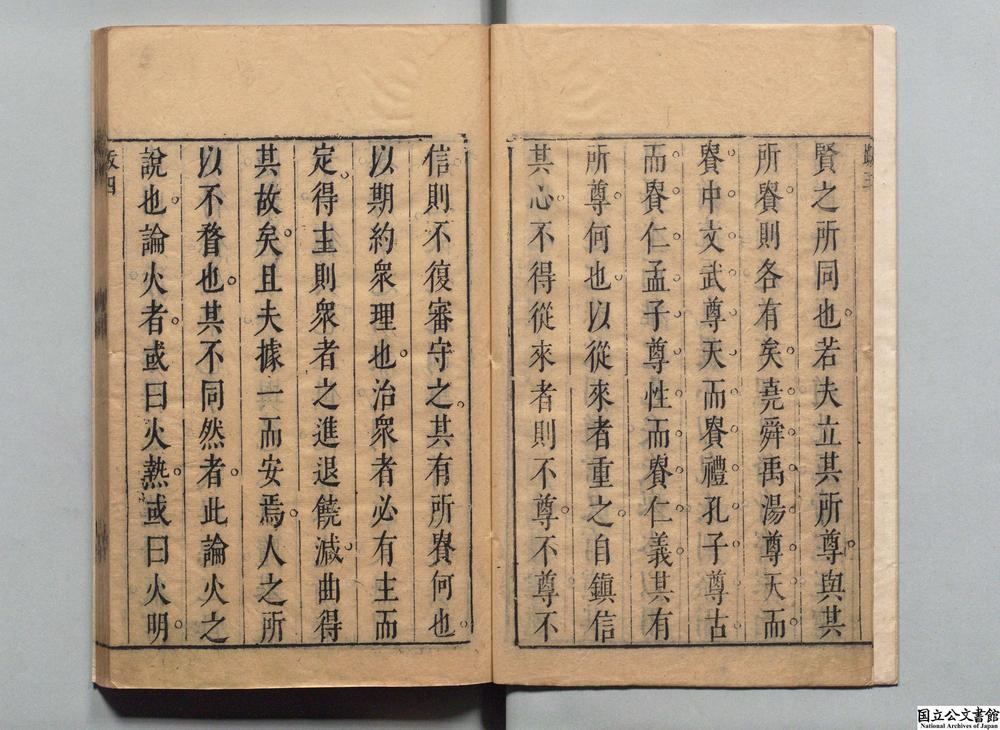 賢之所同也若夫立其所尊與其
所賚則各有矣堯舜禹湯尊天而
賚中文武尊天而賚禮孔子尊古
而賚仁孟子尊性而賚仁義其有
所尊何也以從來者重之自鎮信
其心不得從來者則不尊不尊不
信則不復審守之其有所賚何也
以期約衆理也治衆者必有主而
定得主則衆者之進退饒減曲得
其故矣且夫據一而安焉人之所
以不瞀也其不同然者此論火之
說也論火者或曰火熱或曰火明
跋四
国立公文書館
National Archives of Japan